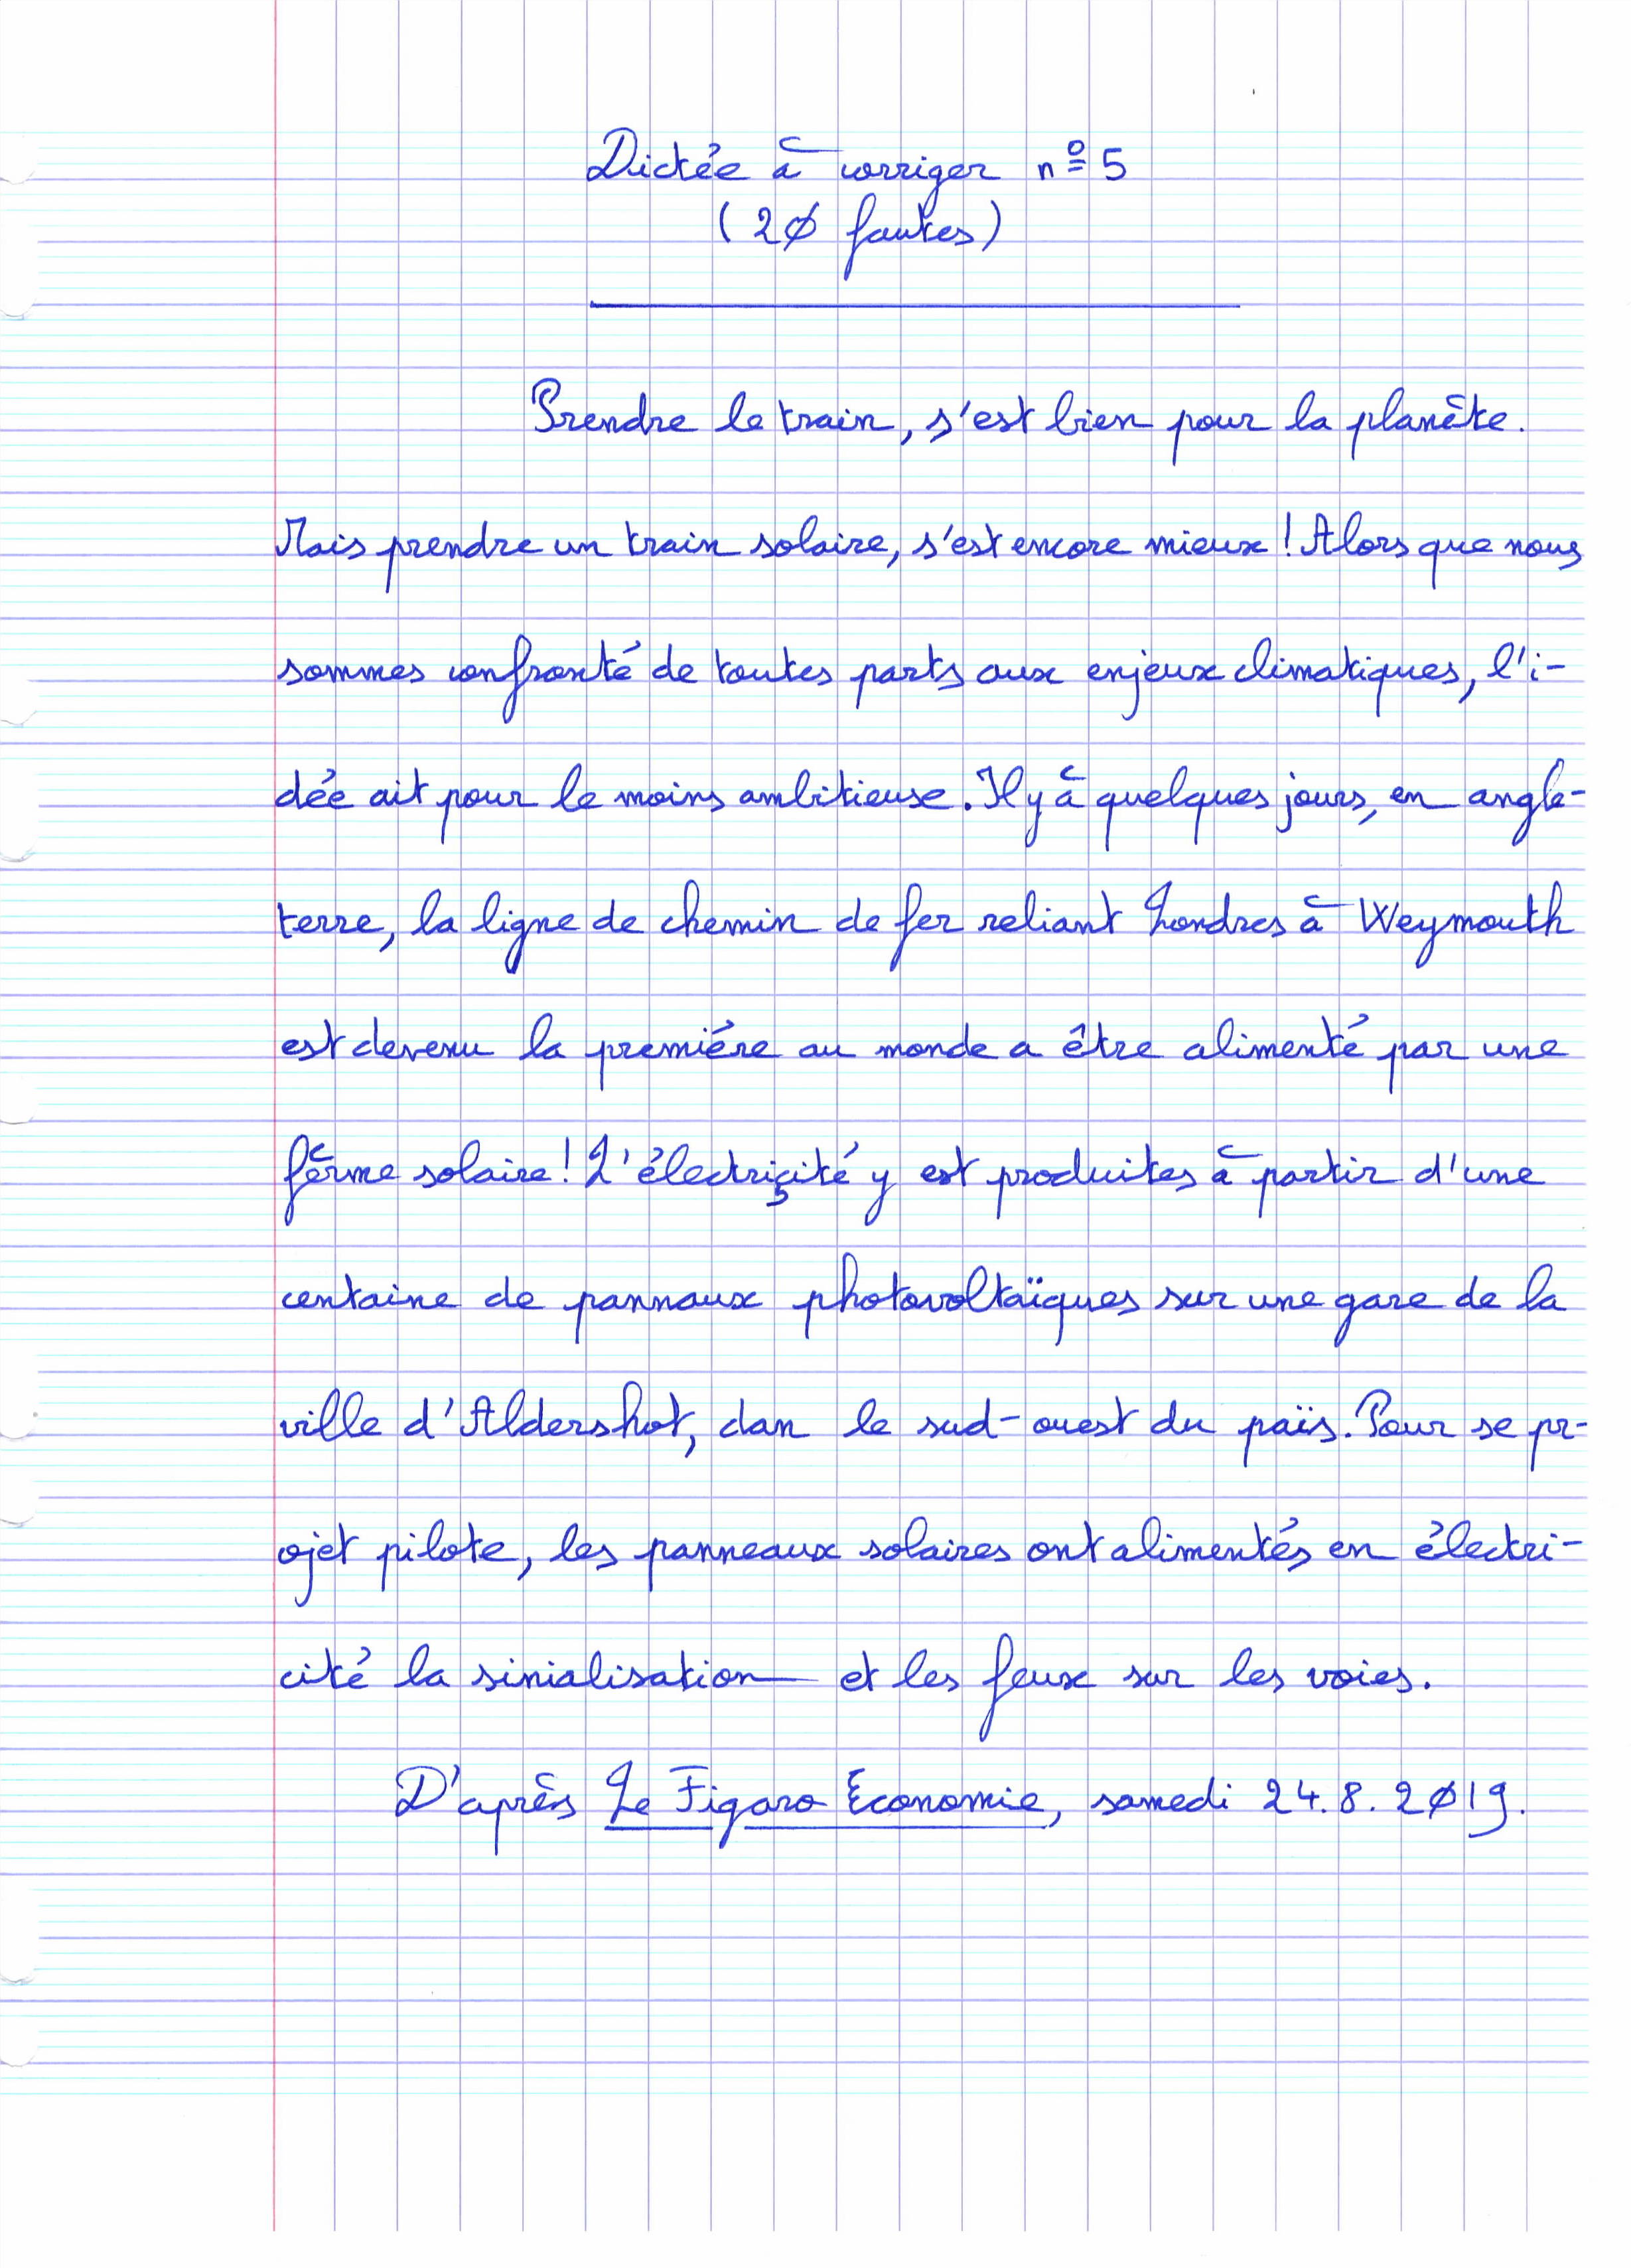 Dictée à corriger nº 5
(20 fautes)
Prendre le train, s'est bien pour la planète.
Mais prendre un train solaire, s'est encore mieux ! Alors que nous
sommes confronté de toutes parts aux enjeux climatiques, l'i-
dée ait pour le moins ambitieuse. Il y à quelques jours, en angle-
terre, la ligne de chemin de fer reliant Londres à Weymouth
est devenu la premiére au monde a être alimenté par une
fèrme solaire ! L'électriçité y est produites à partir d'une
centaine de pannaux photovoltaïques sur une gare de la
ville d'Aldershot, dan le sud-ouest du païs. Pour se pr-
ojet pilote, les panneaux solaires ont alimentés en électri-
cité la sinialisation et les feux sur les voies.
D'après Le Figaro Économie, samedi 24.8.2019.